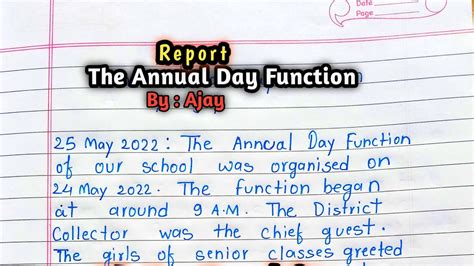 Date
Page
Report
The Annual Day Function
By : Ajay
25 May 2022 : The Anncal Day Function
of our school was organised on
24 May 2022. The function began
at around 9 A.M. The District
Collector was the chief guest.
The girls of senior classes greeted